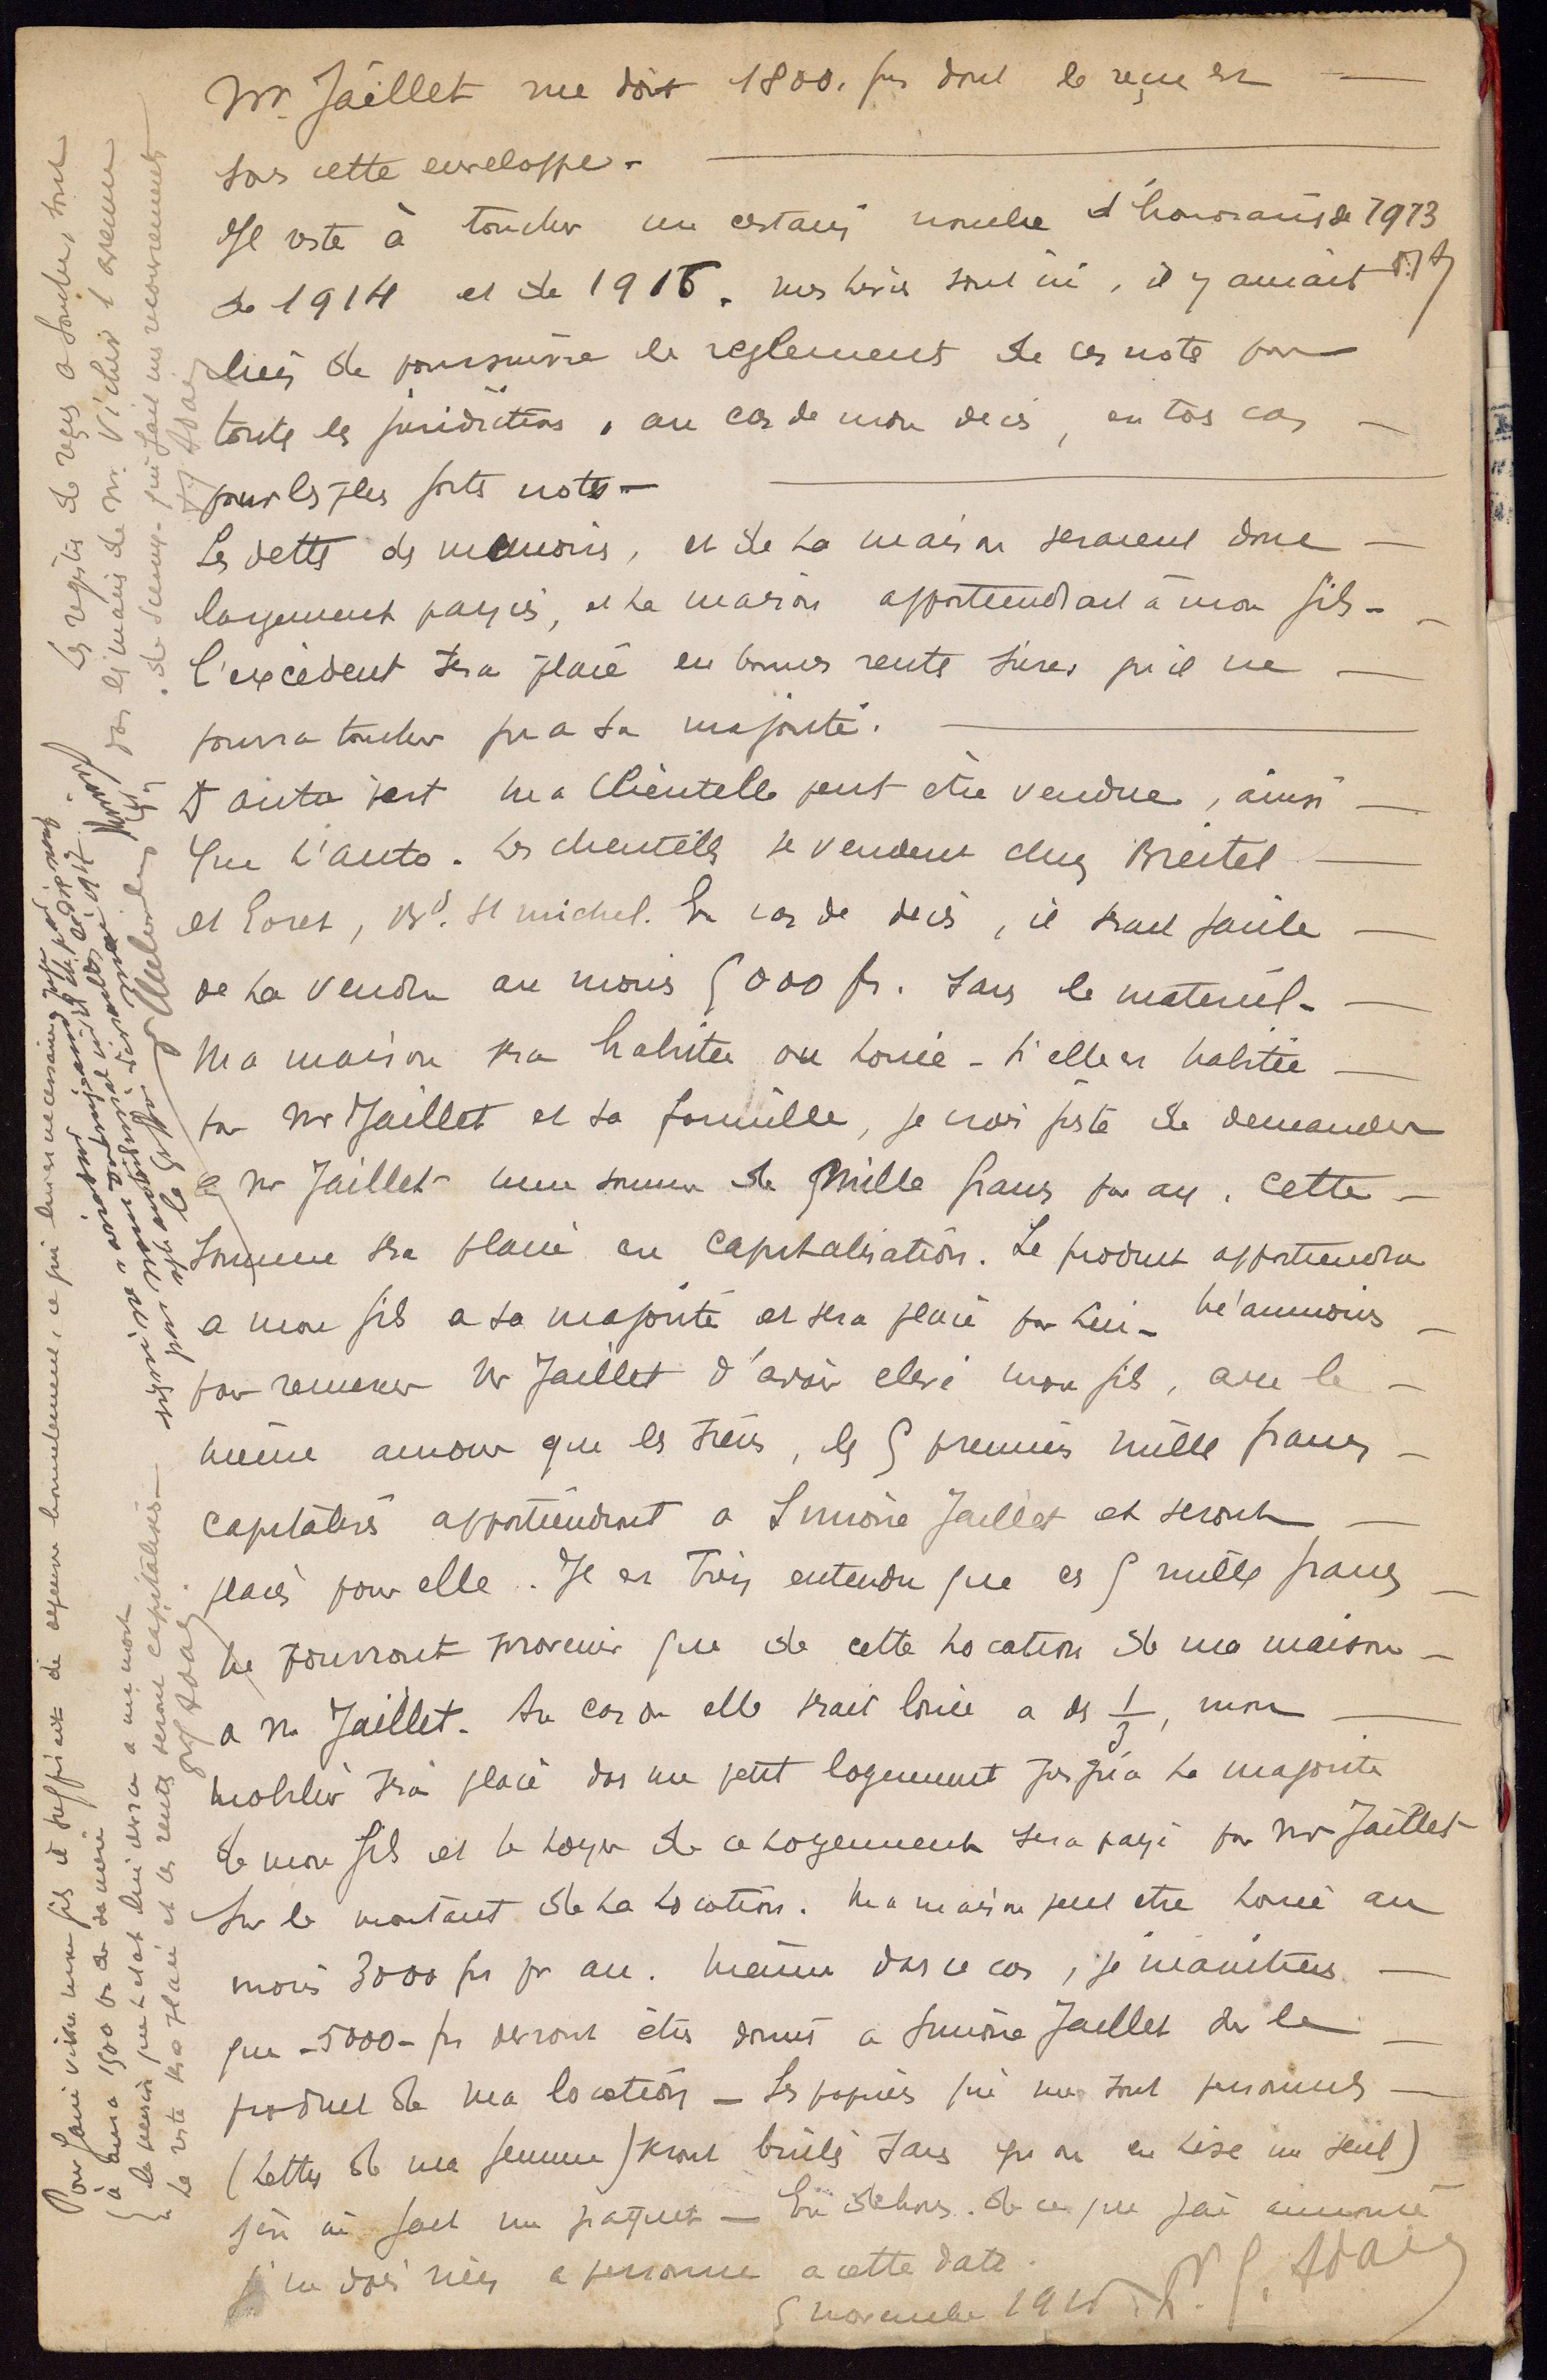 Mr Jaillet me doit 1800. frs dont le reçu est
sous cette enveloppe.
Il reste à toucher un certain nombre d'honoraires de 1913
de 1914 et de 1915. mes livres sont ici, il y aurait
lieu de poursuivre le reglement de ces notes par
toutes les juridictions, au cas de mon deces, en tous cas
pour les plus fortes notes.
Les dettes des memoires, et de la maison seraient donc
largement payées, et la maison appartiendrait à mon fils.
L'excèdent sera placé en bonnes rentes sures qu'il ne
pourra toucher qu'a sa majorité.
D'autre part ma Clientelle peut être vendue, ainsi
que l'auto. Les clientelles se vendent chez Breitel
et Loret, Bd. St michel. En cas de deces, il serait facile
de la vendre au moins 5000 fr. sans le materiel.
Ma maison sera habitée ou louée. Si elle est habitée
par Mr Jaillet et sa famille, je crois juste de demander
à Mr Jaillet une somme de mille francs par an. Cette
somme sera placée en capitalisation. Le produit appartiendra
a mon fils a sa majorité et sera placé par lui. Néanmoins
pour remercier Mr Jaillet d'avoir elevé mon fils, avec le
même amour que les siens, les 5 premiers mille francs
capitalisés appartiendront a Simone Jaillet et seront
placés pour elle. Il est bien entendu que ces 5 mille francs
ne pourront provenir que de cette location de ma maison
a Mr Jaillet. Au cas ou elle serait louée a des 1/3, mon
mobilier sera placé dans un petit logement jusqu'a la majorité
de mon fils et le loyer de ce logement sera payé par Mr Jaillet
sur le montant de la location. Ma maison peut etre louée au
moins 3000 frs par an. Même dans ce cas, je maintiens
que -5000- frs devront êtres donnés a Simone Jaillet sur le
produit de ma location - Les papiers qui me sont personnels
(Lettres de ma femme) seront brulés sans qu'on en lise un seul)
j'en ai fait un paquet - En dehors de ce que j'ai annoncé
je ne dois rien a personne a cette date.
5 novembre 1915 Adam
Les registres de reçus a souches sont
dans les mains de Mr. Vicher
de Sceaux qui fait mes recouvrements
Pour faire vivre mon fils il suffisait de
à 1500 fr de sa mere
la pension que l'etat lui devra a ma mort
Le reste sera placé et ces rentes seront capitalisées